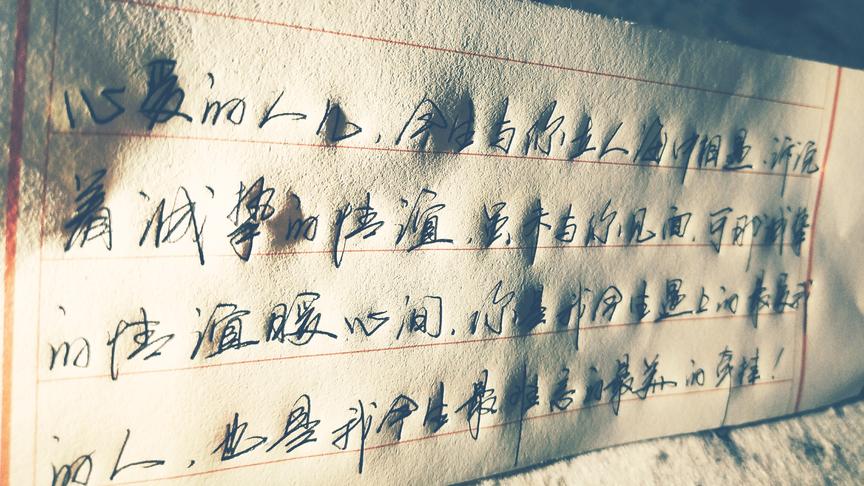 心爱的人儿，今生与你在人海中相遇，诉说
着诚挚的情谊，虽未与你见面，可那诚挚
的情谊暖心间，你是我今生遇上的最美
的人，也是我今生最难忘的最美的牵挂！